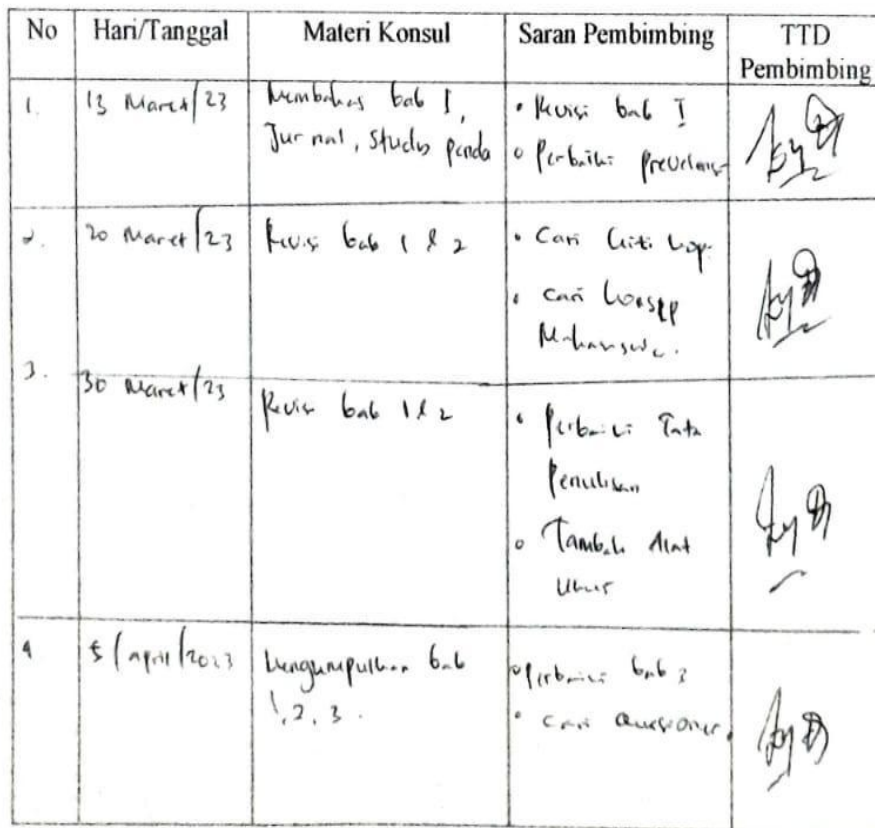 No Hari/Tanggal Materi Konsul Saran Pembimbing TTD
Pembimbing
1. 13 Maret/23 Membahas bab I, • Revisi bab I
Jurnal, Studi • Perbaiki
2. 20 Maret/23 Revisi bab 1 & 2 • Cari
• Cari konsep
Mahasiswa.
3. 30 Maret/23 Revisi bab 1 & 2 • Perbaiki Tata
Penulisan
• Tambah Alat
Ukur
4 5/april/2023 Mengumpulkan bab • Perbaiki bab 3
1, 2, 3. • Cari